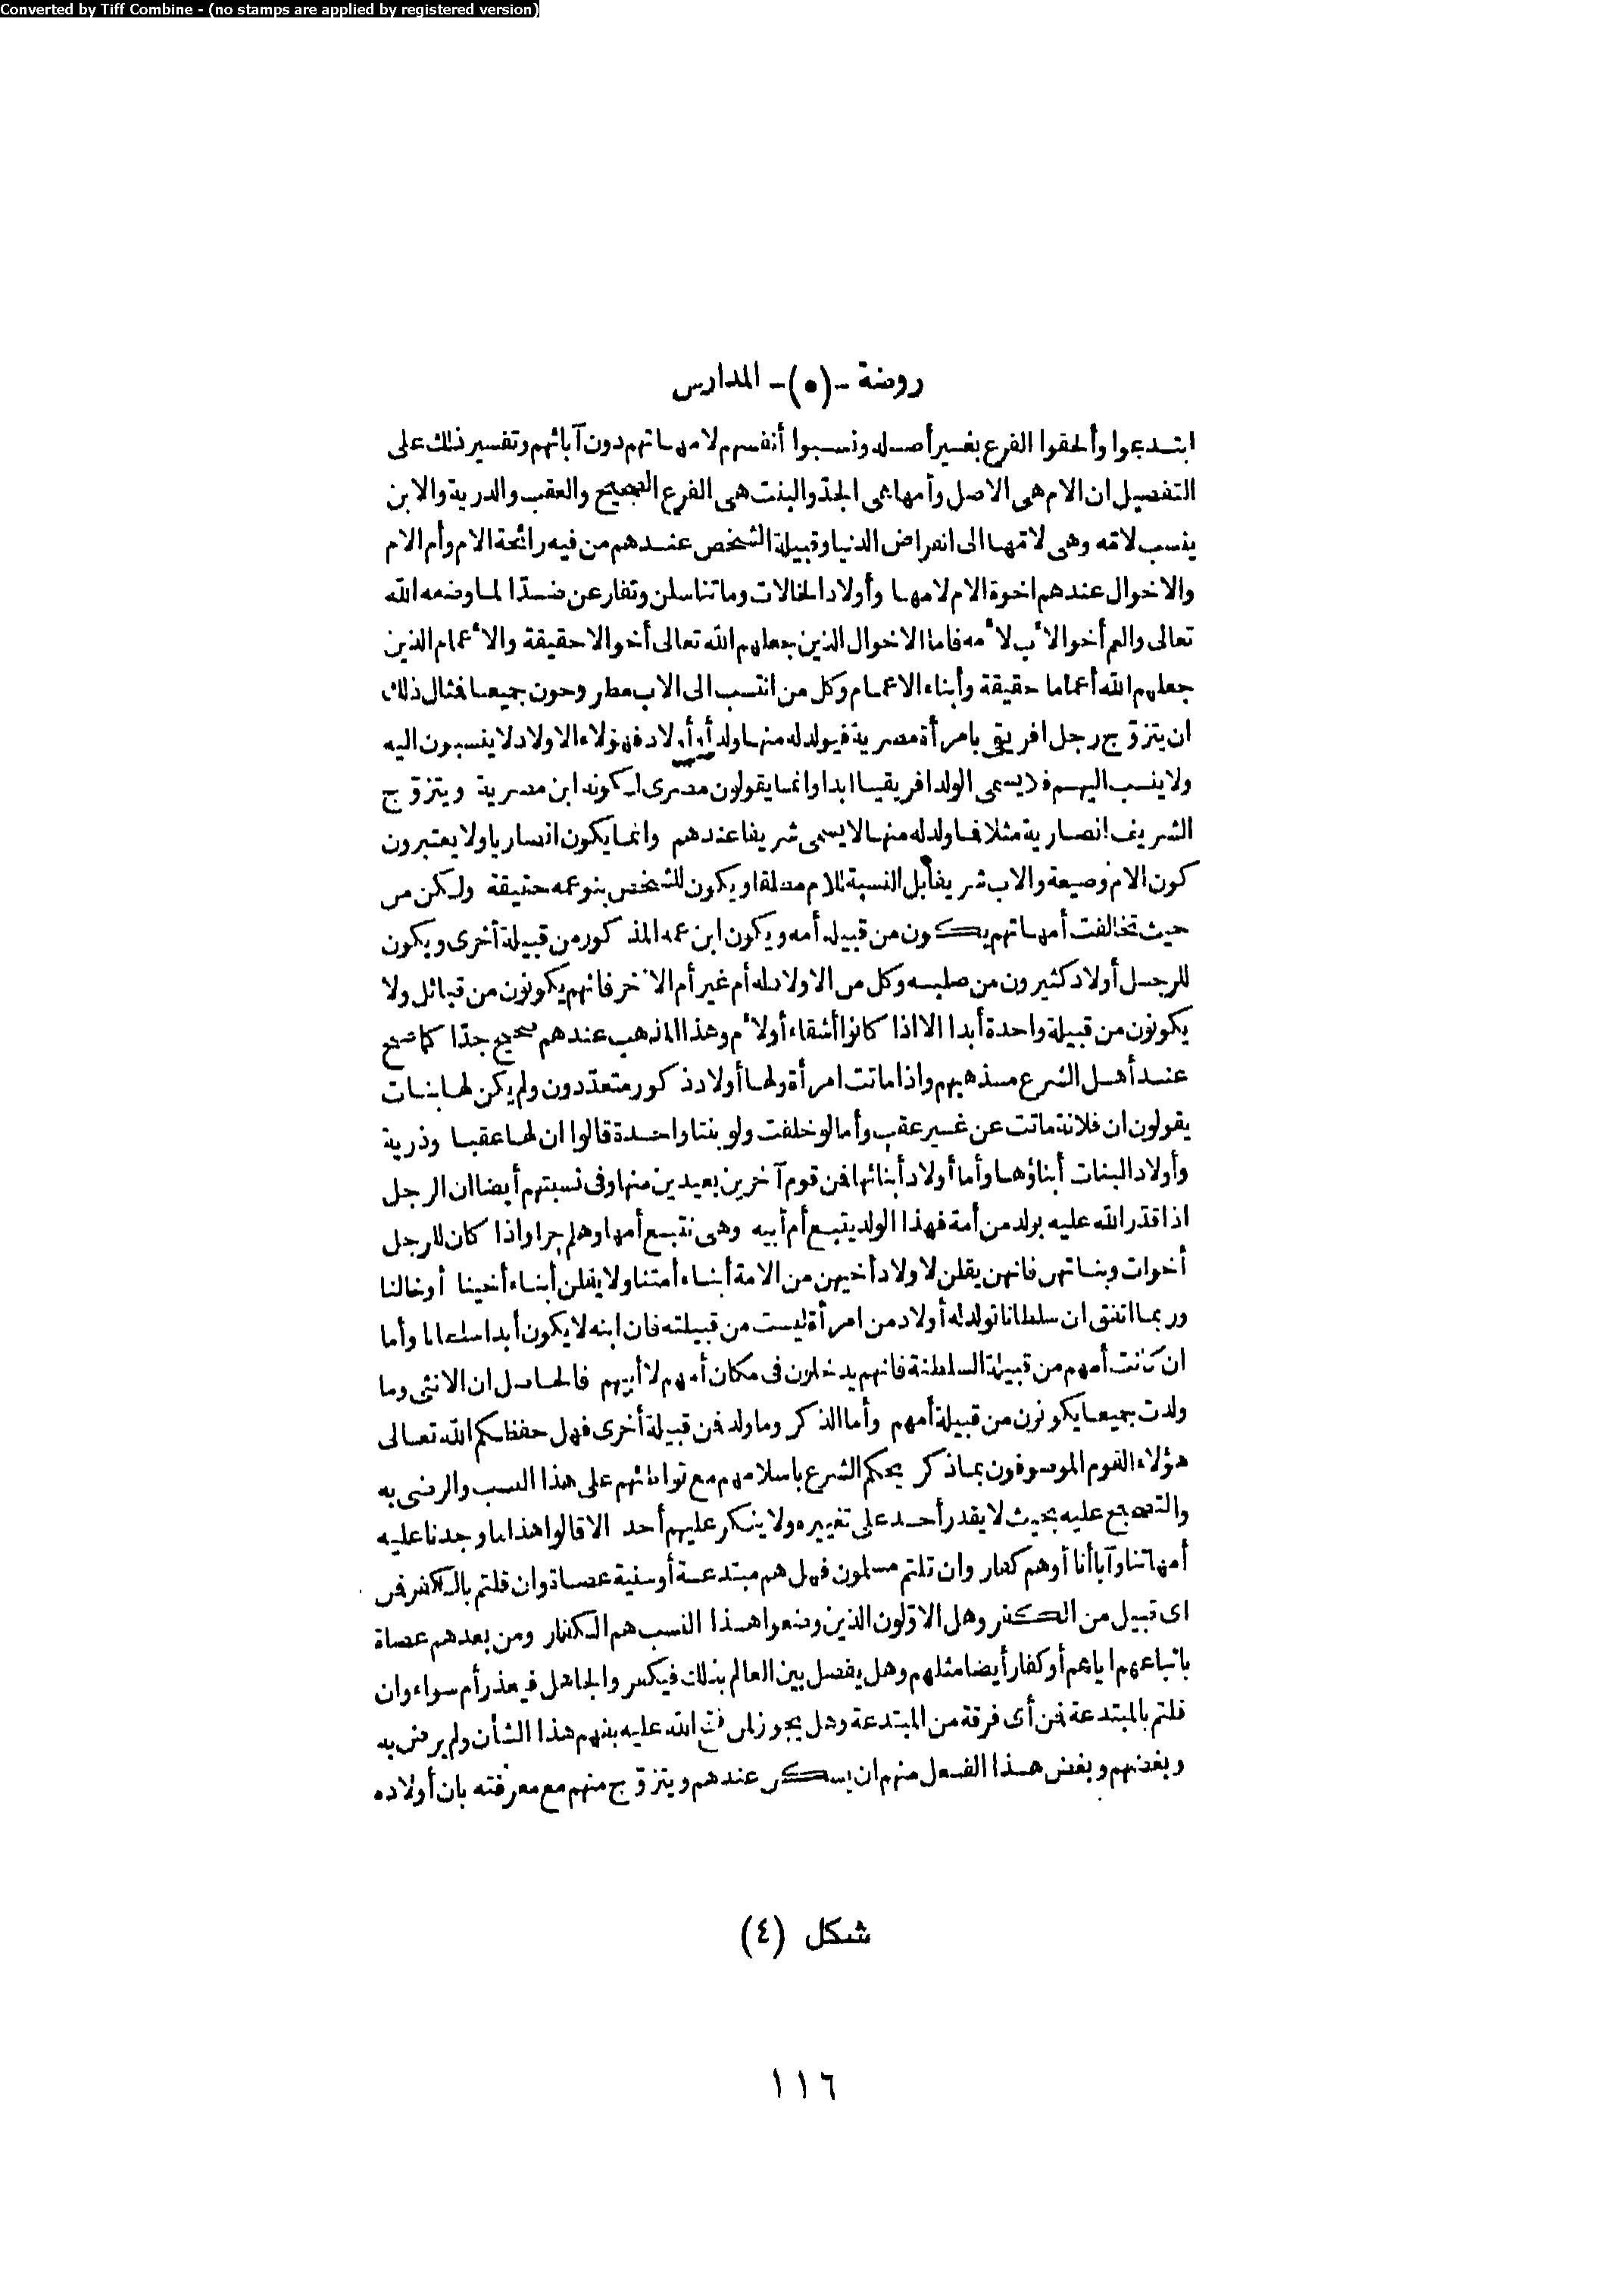 Converted by Tiff Combine - (no stamps are applied by registered version)
روضة -(٥)- المدارس
ابتدعوا وألحقوا الفرع بغير أصله ونسبوا أنفسهم لامهاتهم دون آبائهم وتفسير ذلك على
التفصيل ان الام هى الاصل وأمها هى الجد والبنت هى الفرع الصحيح والعقب والذرية والابن
ينسب لامه وهى لامها الى انقراض الدنيا وقبيلة الشخص عندهم من فيه رائحة الام وأم الام
والاخوال عندهم اخوة الام لامها وأولاد الخالات وما تناسلن وتفارعن ضدّا لما وضعه الله
تعالى والعم أخو الأب لأمه فاما الاخوال الذين جعلهم الله تعالى أخوالا حقيقة والأعمام الذين
جعلهم الله أعماما حقيقة وأبناء الاعمام وكل من انتسب الى الاب مطروحون جميعا فمثال ذلك
ان يتزوّج رجل افريقى بامرأة مصرية فيولد له منها ولد أو أولاد فهؤلاء الاولاد لا ينسبون اليه
ولا ينسب اليهم فلا يسمى الولد افريقيا ابدا وانما يقولون مصرى لكونه ابن مصرية ويتزوّج
الشريف انصارية مثلا فما ولد له منها لا يسمى شريفا عندهم وانما يكون انصاريا ولا يعتبرون
كون الام وضيعة والاب شريفا بل النسبة للام مطلقا ويكون للشخص بنو عمه حقيقة ولكن من
حيث تخالفت أمهاتهم يكون من قبيلة أمه ويكون ابن عمه المذكور من قبيلة أخرى ويكون
للرجل أولاد كثيرون من صلبه وكل من الاولاد له أم غير أم الآخر فانهم يكونون من قبائل ولا
يكونون من قبيلة واحدة أبدا الا اذا كانوا أشقاء أو لأم وهذا المذهب عندهم صحيح جدّا كما صح
عند أهل الشرع مذهبهم واذا ماتت امرأة ولها أولاد ذكور متعدّدون ولم يكن لها بنات
يقولون ان فلانة ماتت عن غير عقب وأما لو خلفت ولو بنتا واحدة قالوا ان لها عقبا وذرية
وأولاد البنات أبناؤها وأما أولاد أبنائها فمن قوم آخرين بعيدين منها وفى نسبتهم أيضا ان الرجل
اذا قدّر الله عليه بولد من أمة فهذا الولد يتبع أم أبيه وهى تتبع أمها وهلم جرا واذا كان للرجل
أخوات وبناتهن فانهن يقلن لاولاد أخيهن من الامة أبناء أمتنا ولا يقلن أبناء أخينا أو خالنا
وربما اتفق ان سلطانا تولد له أولاد من امرأة ليست من قبيلته فان ابنه لا يكون أبدا سلطانا وأما
ان كانت أمهم من قبيلة السلطنة فانهم يدخلون فى مكان أمهم لا أبيهم فالحاصل ان الانثى وما
ولدت جميعا يكونون من قبيلة أمهم وأما الذكر وما ولد فمن قبيلة أخرى فهل حفظكم الله تعالى
هؤلاء القوم الموصوفون بما ذكر يحكم الشرع باسلامهم مع تواطئهم على هذا النسب والرضى به
والتصميم عليه بحيث لا يقدر أحد على تغييره ولا ينكر عليهم أحد الا قالوا هذا ما وجدنا عليه
أمهاتنا وآباأنا أو هم كفار وان قلتم مسلمون فهل هم مبتدعة أو سنية عصاة وان قلتم بالكفر فمن
اى قبيل من الكفر وهل الاوّلون الذين وضعوا هذا النسب هم الكفار ومن بعدهم عصاة
باتباعهم اياهم أو كفار أيضا مثلهم وهل يفصل بين العالم بذلك فيكفر والجاهل فيعذر أم سواء وان
قلتم بالمبتدعة فمن أى فرقة من المبتدعة وهل يجوز لمن فتح الله عليه بفهم هذا الشأن ولم يرض به
وبغضهم وبغض هذا الفعل منهم ان يسكن عندهم ويتزوّج منهم مع معرفته بان أولاده
شكل (٤)
١١٦